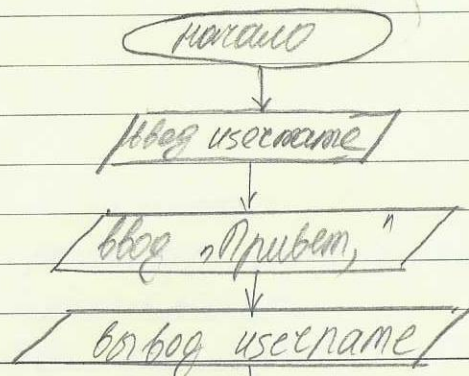 начало
ввод username
ввод „Привет,"
вывод username